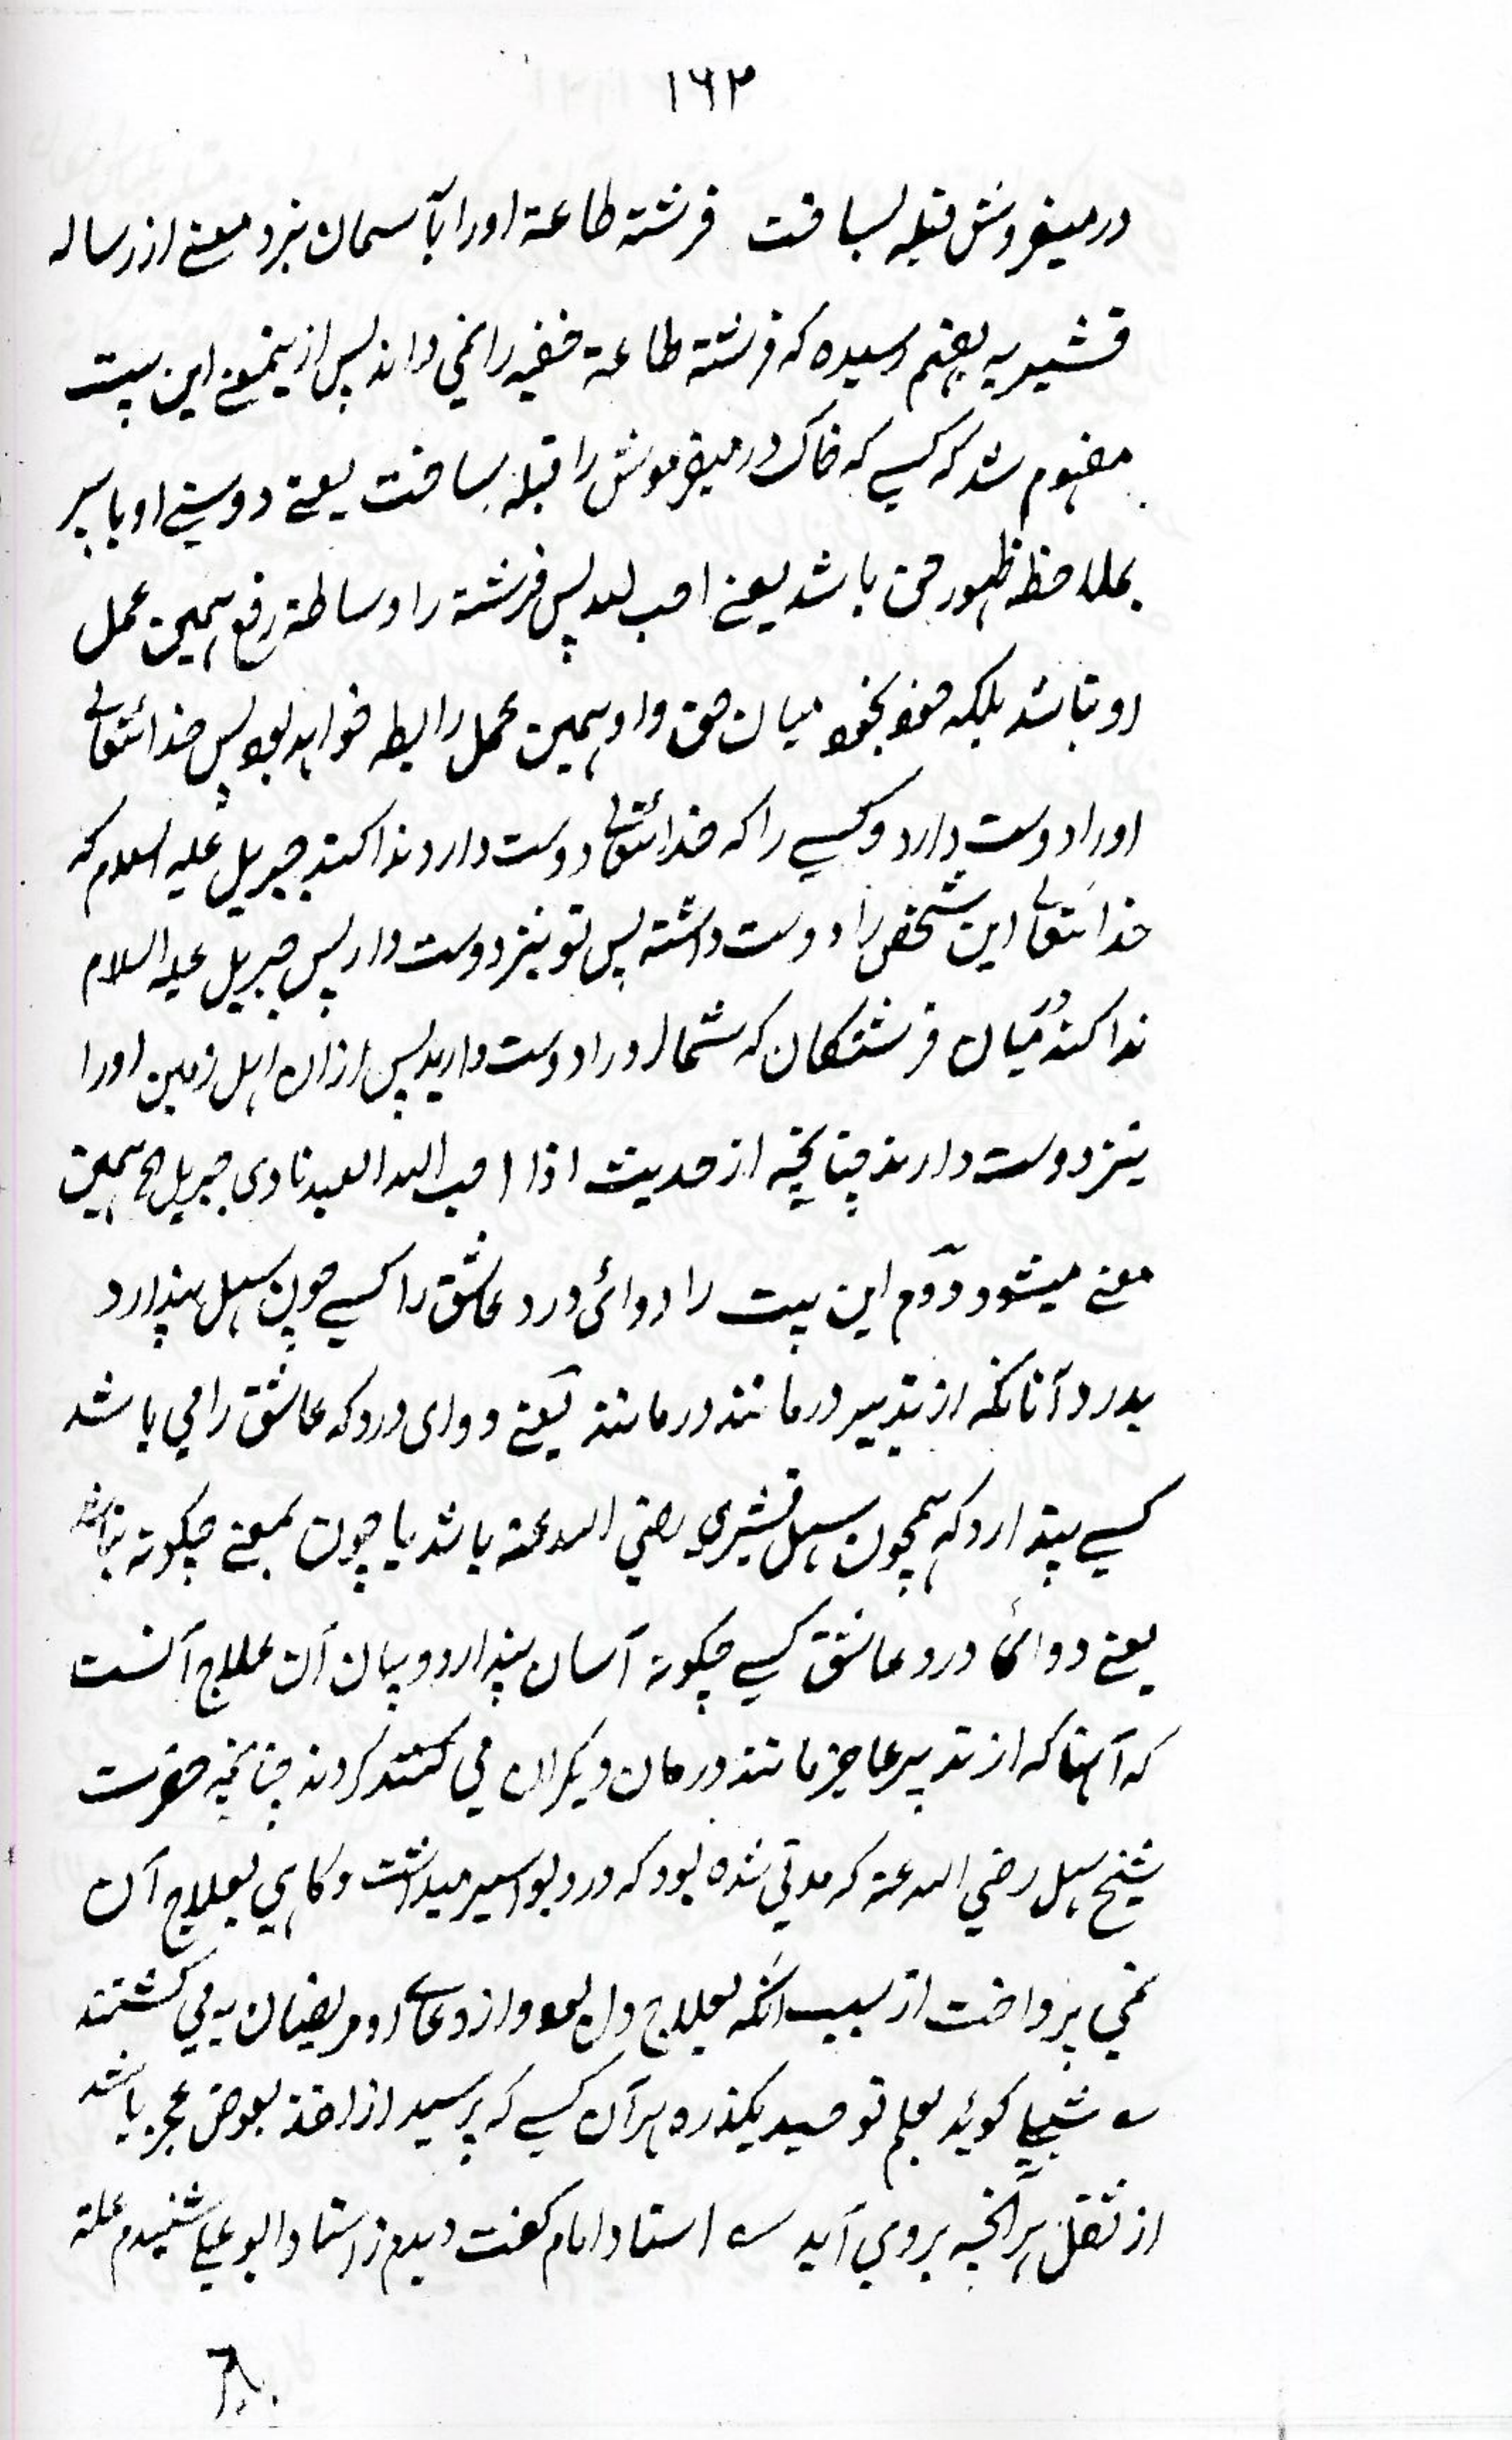 ۱۶۲
در میفروش قبله بساخت فرشته طاعة اورا بآسمان نبرد معنے از رساله
قشیریه بفهم رسیده که فرشته طاعة خفیه را نمی داند پس ازینمعنے این بیت
مفهوم شد که کسے که خاک در میفروش را قبله بساخت یعنے دوستے او با پیر
بملاحظه ظهور حق باشد یعنے احب لله پس فرشته را وساطة رفع همین عمل
او نباشد بلکه خود بخود میان حق و او همین عمل رابطه خواهد بود پس خدائتعالے
اورا دوست دارد و کسے را که خدائتعالے دوست دارد ندا کند جبریل علیه السلام که
خدائتعالے این شخص را دوست داشته پس تو نیز دوست دار پس جبریل علیه السلام
ندا کند درمیان فرشتکان که شما اورا دوست دارید پس ازان اهل زمین اورا
نیز دوست دارند چنانچه از حدیث اذا احب الله العبد نادی جبریل الخ همین
معنے میشود دوم این بیت را دوائ درد عاشق را کسے چون سهل پندارد
بدرد آنانکه از تدبیر درمانند درمانند یعنے دوای درد که عاشق را می باشد
کسے پندارد که همچون سهل قشیری رضي الله عنه باشد یا چون بمعنے چکونه باشد
یعنے دوائ درد عاشق کسے چکونه آسان پندارد و بیان آن علاج آنست
که آنها که از تدبیر عاجز مانند درمان دیکران می کنند کردند چنانچه حضرت
شیخ سهل رضي الله عنه که مدتي شده بود که درد بواسیر میداشت و کاهی بعلاج آن
نمي پرداخت از سبب آنکه بعلاج دل بود و از دعائے او مریضان به می کشتند
شبلے کوید بعلم توحید یکذره هر آن کسے که پرسید از اخذ بعوض عجز باشد
از ثقل هر آنچه بروي آید استاد امام کفت دیدم ز استاد ابو علے شنیدم علته